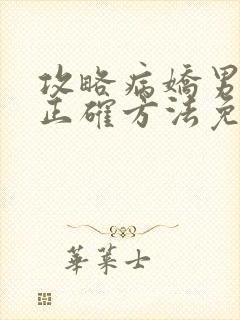 攻略病嬌男
正確方法免
華萊士